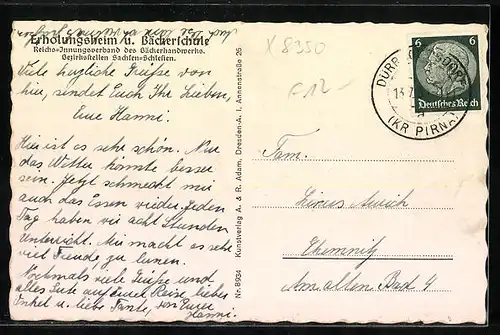 Erholungsheim u. Bäckerschule
Reichs-Innungsverband des Bäckerhandwerks.
Bezirksstellen Sachsen-Schlesien.
Viele herzliche Grüße von
hier, sendet Euch Ihr Lieben,
Eure Hanni.
Hier ist es sehr schön. Nur
das Wetter könnte besser
sein. Jetzt schmeckt mir
auch das Essen wieder. Jeden
Tag haben wir acht Stunden
Unterricht. Mir macht es sehr
viel Freude zu lernen.
Nochmals viele Grüße und
alles Gute auf Eurer Reise lieber
Onkel u. liebe Tante, von Eurer
Hanni.
Nr. 8934 Kunstverlag A. & R. Adam, Dresden-A. 1, Annenstraße 25
X 8350
12-
6 6
Deutsches Reich
DÜRR
(KR PIRNA)
Fam.
Chemnitz
Am alten Bad 4